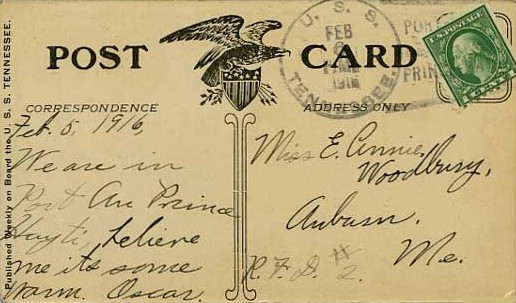 Published Weekly on Board the U. S. S. TENNESSEE.
POST CARD
CORRESPONDENCE
ADDRESS ONLY
U. S. S.
FEB
1916
TENNESSEE.
POR
PRIN
U.S. POSTAGE
Feb. 5, 1916,
We are in
Port Au Prince
Hayti, believe
me its some
warm. Oscar.
Miss E. Annie
Woodbury,
Auburn.
Me.
R. F. D. # 2.